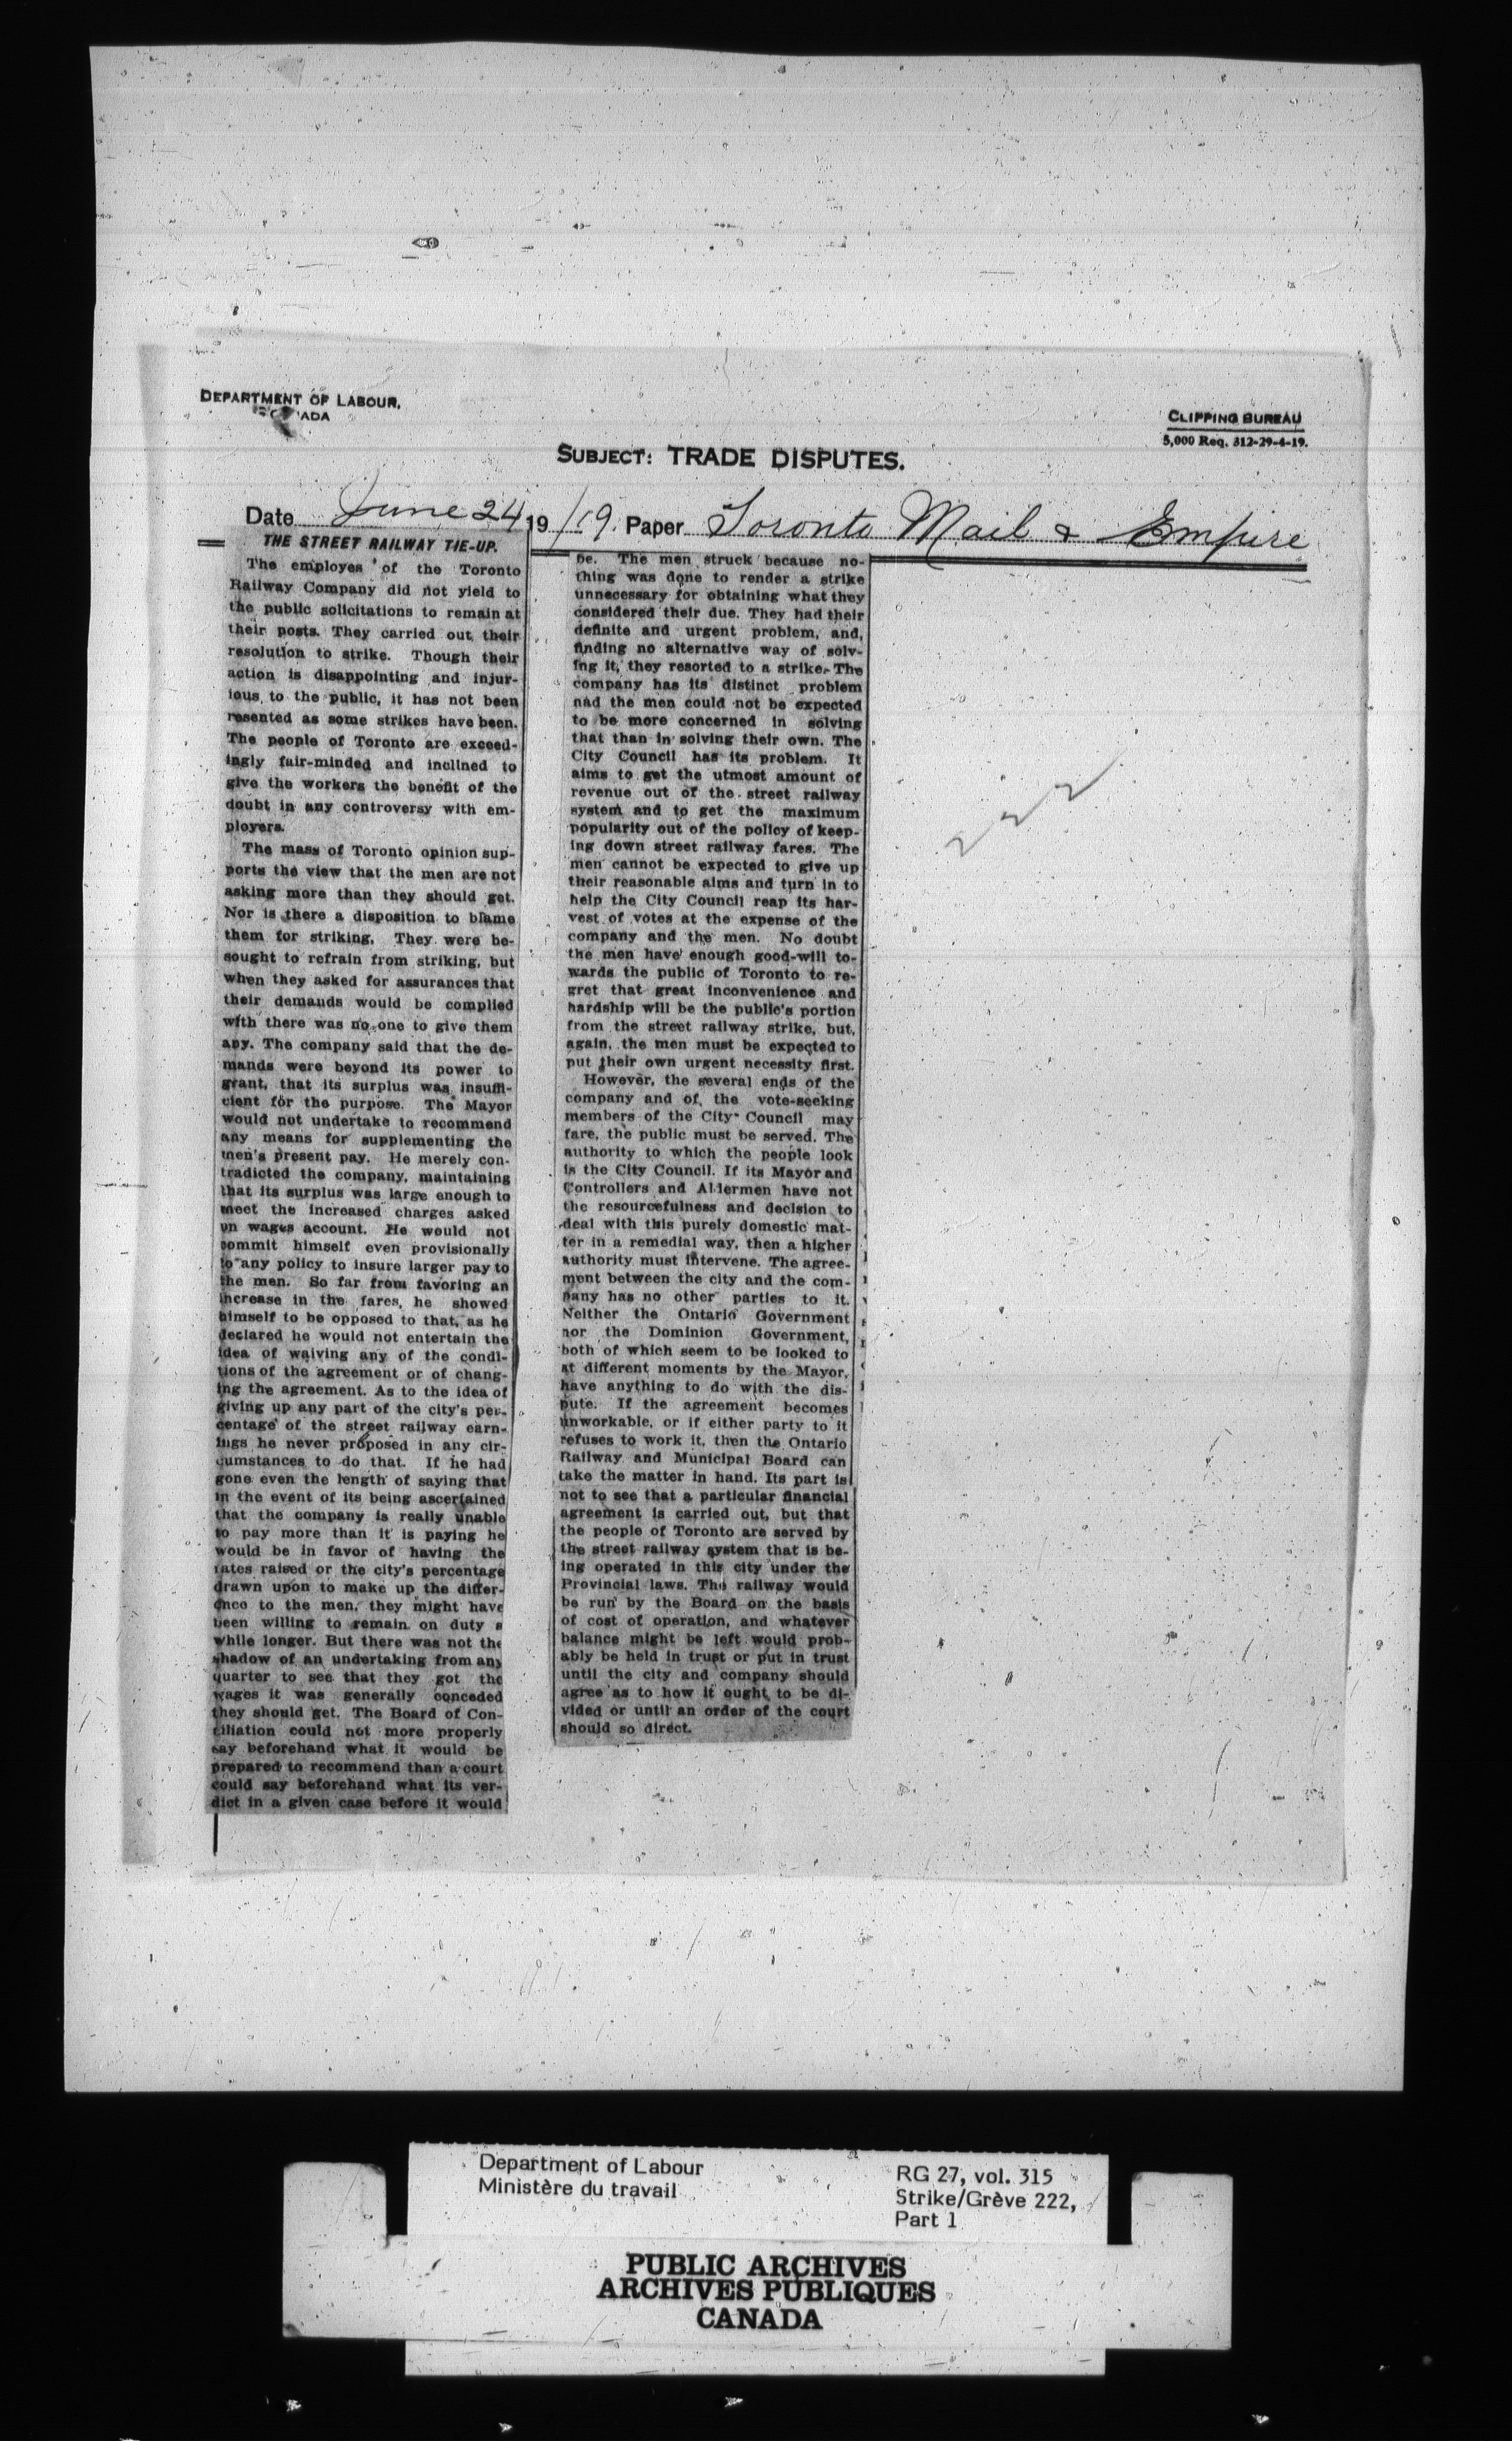 DEPARTMENT OF LABOUR,
CLIPPING BUREAU
5,000 Req. 312-29-4-19.
SUBJECT: TRADE DISPUTES.
Date June 24 19/19. Paper Toronto Mail & Empire
THE STREET RAILWAY TIE-UP.
The employes of the Toronto
Railway Company did not yield to
the public solicitations to remain at
their posts. They carried out their
resolution to strike. Though their
action is disappointing and injur-
ious to the public, it has not been
resented as some strikes have been.
The people of Toronto are exceed-
ingly fair-minded and inclined to
give the workers the benefit of the
doubt in any controversy with em-
ployers.
The mass of Toronto opinion sup-
ports the view that the men are not
asking more than they should get.
Nor is there a disposition to blame
them for striking. They were be-
sought to refrain from striking, but
when they asked for assurances that
their demands would be complied
with there was no one to give them
any. The company said that the de-
mands were beyond its power to
grant, that its surplus was insuffi-
cient for the purpose. The Mayor
would not undertake to recommend
any means for supplementing the
men's present pay. He merely con-
tradicted the company, maintaining
that its surplus was large enough to
meet the increased charges asked
on wages account. He would not
commit himself even provisionally
to any policy to insure larger pay to
the men. So far from favoring an
increase in the fares, he showed
himself to be opposed to that, as he
declared he would not entertain the
idea of waiving any of the condi-
tions of the agreement or of chang-
ing the agreement. As to the idea of
giving up any part of the city's per-
centage of the street railway earn-
ings he never proposed in any cir-
cumstances to do that. If he had
gone even the length of saying that
in the event of its being ascertained
that the company is really unable
to pay more than it is paying he
would be in favor of having the
rates raised or the city's percentage
drawn upon to make up the differ-
ence to the men, they might have
been willing to remain on duty a
while longer. But there was not the
shadow of an undertaking from any
quarter to see that they got the
wages it was generally conceded
they should get. The Board of Con-
ciliation could not more properly
say beforehand what it would be
prepared to recommend than a court
could say beforehand what its ver-
dict in a given case before it would
be. The men struck because no-
thing was done to render a strike
unnecessary for obtaining what they
considered their due. They had their
definite and urgent problem, and,
finding no alternative way of solv-
ing it, they resorted to a strike. The
company has its distinct problem
nad the men could not be expected
to be more concerned in solving
that than in solving their own. The
City Council has its problem. It
aims to get the utmost amount of
revenue out of the street railway
system and to get the maximum
popularity out of the policy of keep-
ing down street railway fares. The
men cannot be expected to give up
their reasonable aims and turn in to
help the City Council reap its har-
vest of votes at the expense of the
company and the men. No doubt
the men have enough good-will to-
wards the public of Toronto to re-
gret that great inconvenience and
hardship will be the public's portion
from the street railway strike, but,
again, the men must be expected to
put their own urgent necessity first.
However, the several ends of the
company and of the vote-seeking
members of the City Council may
fare, the public must be served. The
authority to which the people look
is the City Council. If its Mayor and
Controllers and Aldermen have not
the resourcefulness and decision to
deal with this purely domestic mat-
ter in a remedial way, then a higher
authority must intervene. The agree-
ment between the city and the com-
pany has no other parties to it.
Neither the Ontario Government
nor the Dominion Government,
both of which seem to be looked to
at different moments by the Mayor,
have anything to do with the dis-
pute. If the agreement becomes
unworkable, or if either party to it
refuses to work it, then the Ontario
Railway and Municipal Board can
take the matter in hand. Its part is
not to see that a particular financial
agreement is carried out, but that
the people of Toronto are served by
the street railway system that is be-
ing operated in this city under the
Provincial laws. The railway would
be run by the Board on the basis
of cost of operation, and whatever
balance might be left would prob-
ably be held in trust or put in trust
until the city and company should
agree as to how it ought to be di-
vided or until an order of the court
should so direct.
222
Department of Labour
Ministère du travail
RG 27, vol. 315
Strike/Grève 222,
Part 1
PUBLIC ARCHIVES
ARCHIVES PUBLIQUES
CANADA